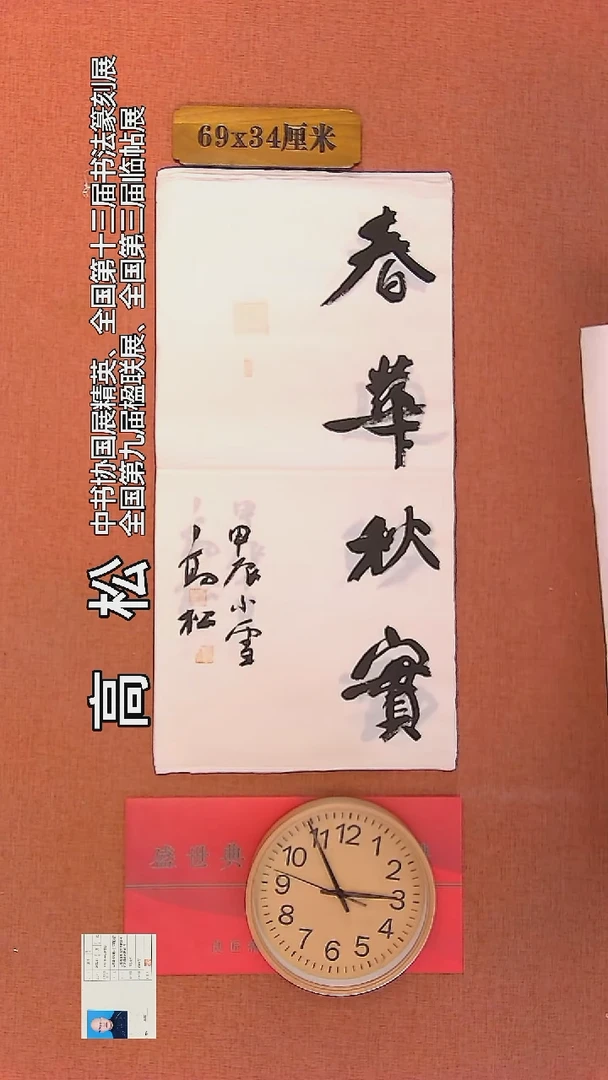 69x34厘米
春華秋實
甲辰小雪
高松
高 松
中书协国展精英、全国第十三届书法篆刻展
全国第九届楹联展、全国第三届临帖展
盛世典
12
1
2
3
4
5
6
7
8
9
10
11